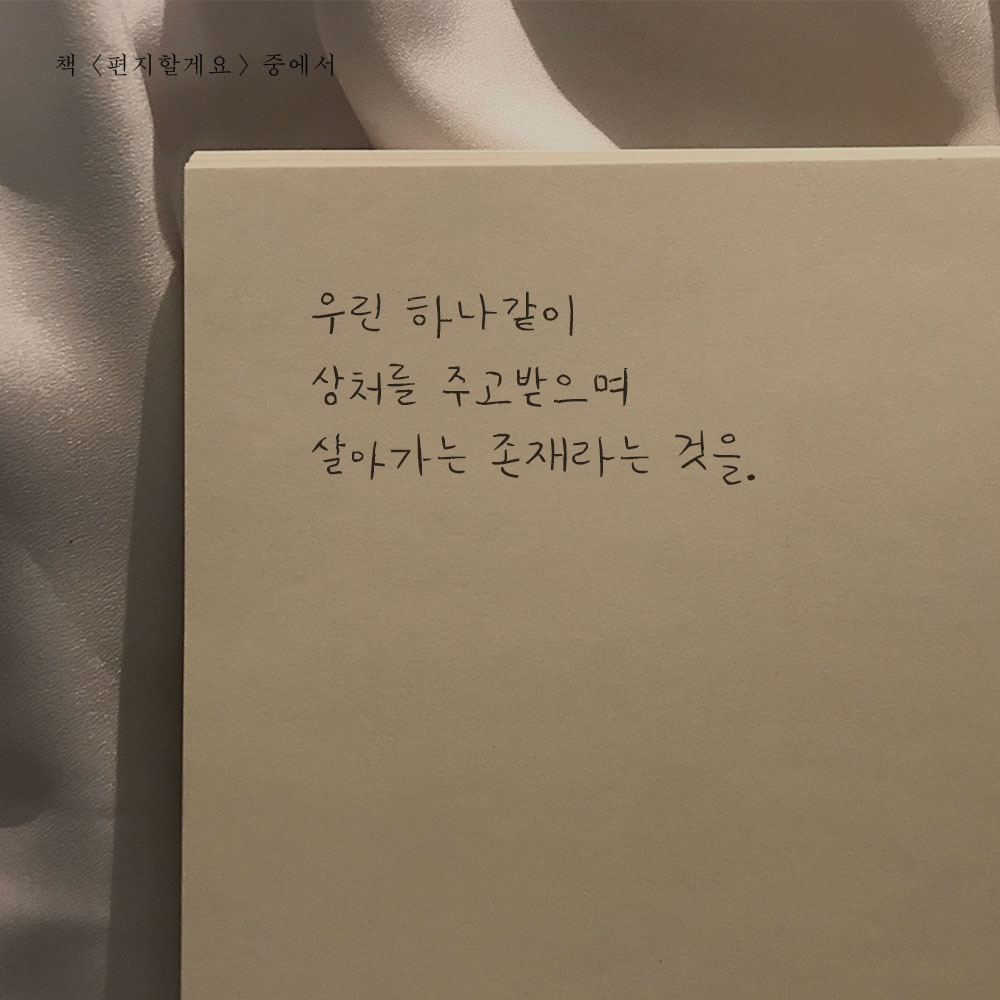 책 〈편지할게요〉 중에서
우린 하나같이
상처를 주고받으며
살아가는 존재라는 것을.